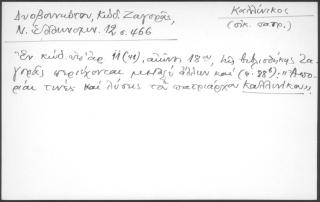 Δυοβουνιώτου, Κώδ. Ζαγορᾶς,
Ν. Ἑλληνομν. 12 σ. 466
Καλλίνικος
(οἰκ. πατρ.)
Ἐν κώδ. ὑπ' ἀρ. 11 (41), αἰῶνος 18ου, τῆς βιβλιοθήκης Ζα-
γορᾶς περιέχονται μεταξὺ ἄλλων καὶ (φ. 88β): "Ἀπο-
ρίαι τινὲς καὶ λύσεις τοῦ πατριάρχου Καλλινίκου".